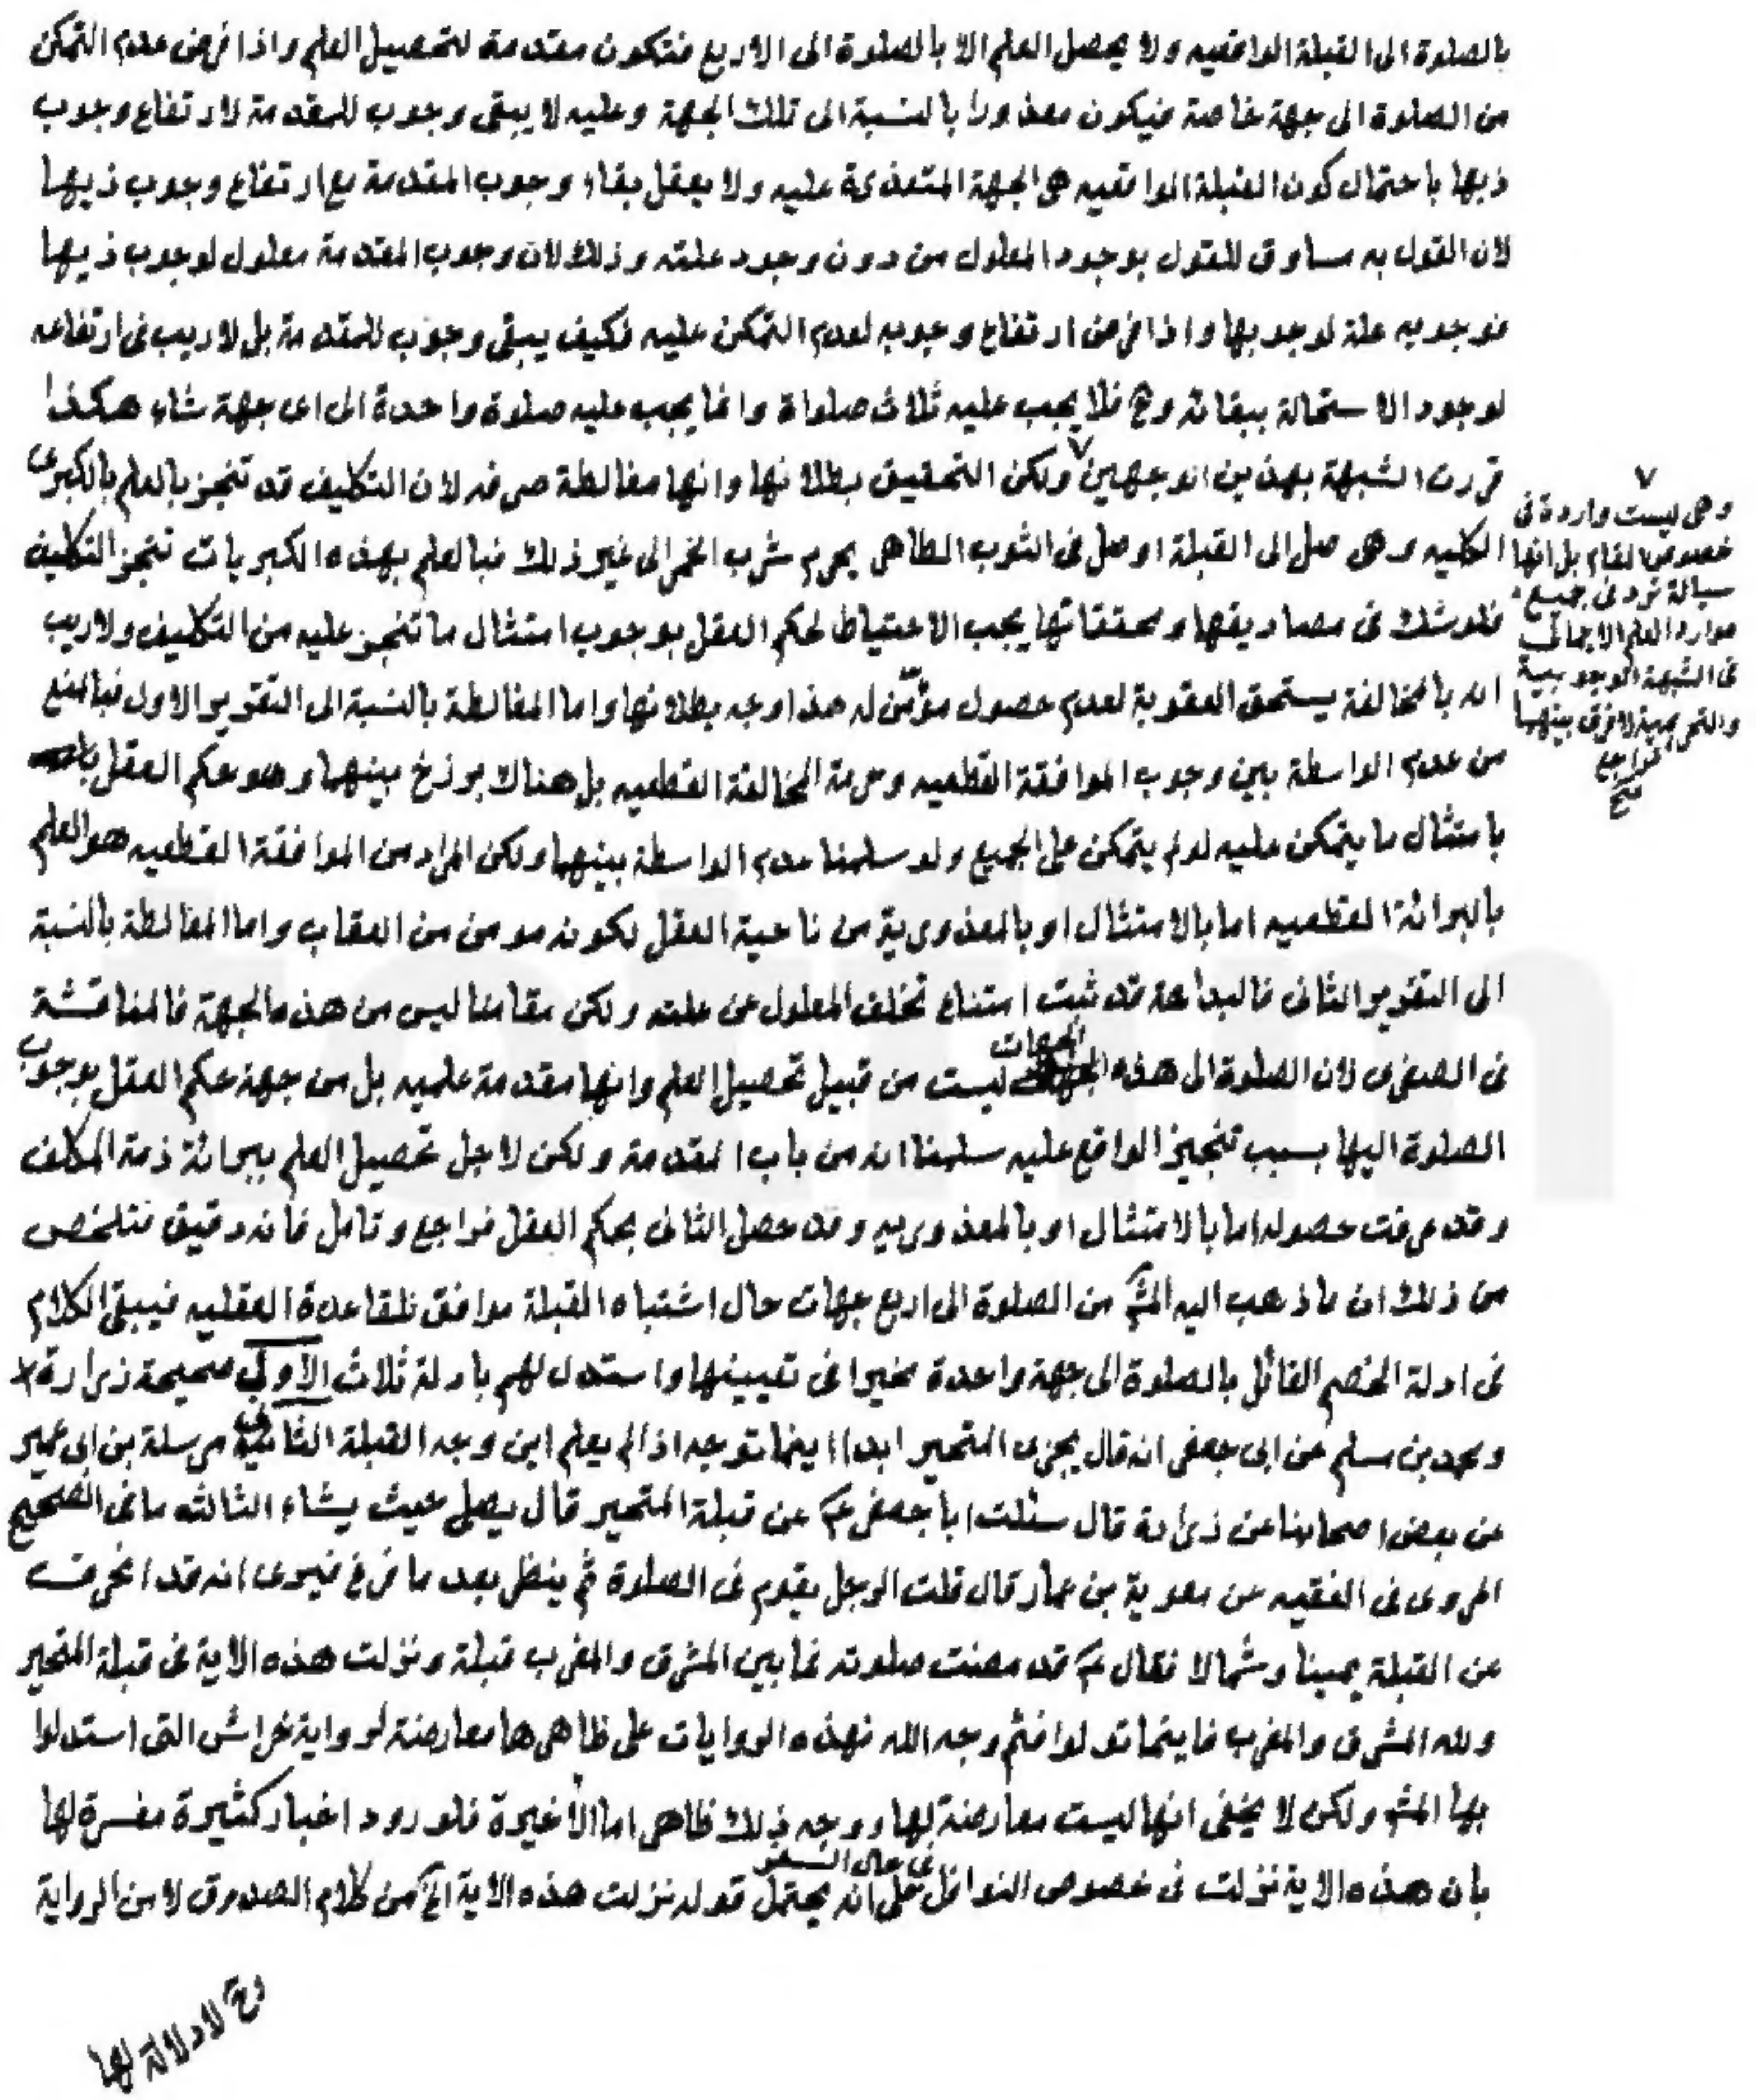 بالصلوة الى القبلة الواقعيه ولا يحصل العلم الا بالصلوة الى الاربع فتكون مقدمة لتحصيل العلم واذا فرض عدم التمكن
من الصلوة الى جهة خاصة فيكون معذورا بالنسبة الى تلك الجهة وعليه لا يبقى وجوب للمقدمة لارتفاع وجوب
ذيها باحتمال كون القبلة الواقعيه هى الجهة المتعذرة عليه ولا يعقل بقاء وجوب المقدمة مع ارتفاع وجوب ذيها
لان القول به مساوق للقول بوجود المعلول من دون وجود علته وذلك لان وجوب المقدمة معلول لوجوب ذيها
فوجوبه علة لوجوبها واذا فرض ارتفاع وجوبه لعدم التمكن عليه فكيف يبقى وجوب للمقدمة بل لا ريب فى ارتفاعه
لوجود الاستحالة ببقائه وح فلا يجب عليه ثلاث صلواة وانما يجب عليه صلوة واحدة الى اى جهة شاء هكذا
قررت الشبهة بهذين الوجهين ولكن التحقيق بطلانها وانها مغالطة صرفه لان التكليف قد تنجز بالعلم بالكبرى
الكليه وهى صل الى القبلة او صل فى الثوب الطاهر يحرم شرب الخمر الى غير ذلك فبالعلم بهذه الكبريات تنجز التكليف
فلو شك فى مصاديقها ومحققاتها يجب الاحتياط لحكم العقل بوجوب امتثال ما تنجز عليه من التكليف ولا ريب
انه بالمخالفة يستحق العقوبة لعدم حصول مؤمّن له هذا وجه بطلانها واما المغالطة بالنسبة الى التقرير الاول فبالمنع
من عدم الواسطة بين وجوب الموافقة القطعيه وحرمة المخالفة القطعيه بل هناك برزخ بينهما وهو حكم العقل
بامتثال ما يتمكن عليه لو لم يتمكن على الجميع ولو سلمنا عدم الواسطة بينهما ولكن المراد من الموافقة القطعيه هو العلم
بالبرائة القطعيه اما بالامتثال او بالمعذورية من ناحية العقل لكونه مومن من العقاب واما المغالطة بالنسبة
الى التقرير الثانى فالبداهة قد ثبت امتناع تخلف المعلول عن علته ولكن مقامنا ليس من هذه الجهة فالمناقشة
فى الصغرى لان الصلوة الى هذه الجهات ليست من قبيل تحصيل العلم وانها مقدمة علميه بل من جهة حكم العقل بوجوب
الصلوة اليها بسبب تنجيز الواقع عليه سلمنا انه من باب المقدمة ولكن لاجل تحصيل العلم ببرائة ذمة المكلف
وقد عرفت حصوله اما بالامتثال او بالمعذوريه وقد حصل الثانى بحكم العقل فراجع وتامل فانه دقيق فتلخص
من ذلك ان ما ذهب اليه المش من الصلوة الى اربع جهات حال اشتباه القبلة موافق للقاعدة العقليه فيبقى الكلام
فى ادلة الخصم القائل بالصلوة الى جهة واحدة مخيرا فى تعيينها واستدل لهم بادلة ثلاث الاولى صحيحة زرارة
ومحمد بن مسلم عن ابى جعفر انه قال يجزى المتحير ابدا اينما توجه اذا لم يعلم اين وجه القبلة الثانى مرسلة بن ابى عمير
عن بعض اصحابنا عن زرارة قال سئلت ابا جعفر ع عن قبلة المتحير قال يصلى حيث يشاء الثالثه ما فى الصحيح
المروى فى الفقيه عن معوية بن عمار قال قلت الرجل يقوم فى الصلوة ثم ينظر بعد ما فرغ فيرى انه قد انحرف
عن القبلة يمينا وشمالا فقال ع قد مضت صلوته فما بين المشرق والمغرب قبلة ونزلت هذه الاية فى قبلة المتحير
ولله المشرق والمغرب فاينما تولوا فثم وجه الله فهذه الروايات على ظاهرها معارضة لرواية خراش التى استدلوا
بها المش ولكن لا يخفى انها ليست معارضة لها ووجه ذلك ظاهر اما الاخيرة فلورود اخبار كثيرة مفسرة لها
بان هذه الاية نزلت فى خصوص النوافل فى حال السفر على انه يحتمل قوله نزلت هذه الاية الخ من كلام الصدوق لا من الرواية
وح لا دلالة لها
وهى ليست واردة فى
خصوص المقام بل انها
سيالة ترد فى جميع
موارد العلم الاجمالى
فى الشبهة الوجوبية
والتحريمية لا فرق بينهما
فراجع
صح